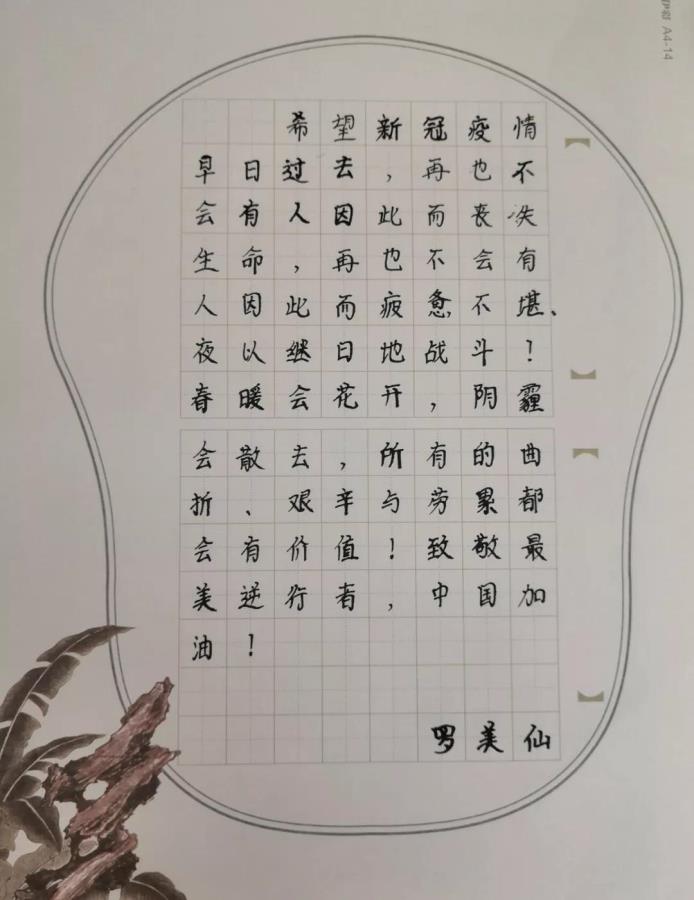 伊彩 A4-14
希望新冠疫情
早日过去，再也不
会有人因此而丧失
生命，再也不会有
人因此而疲惫不堪、
夜以继日地战斗！
春暖会花开，阴霾
会散去，所有的曲
折、艰辛与劳累都
会有价值！致敬最
美逆行者，中国加
油！
罗美仙